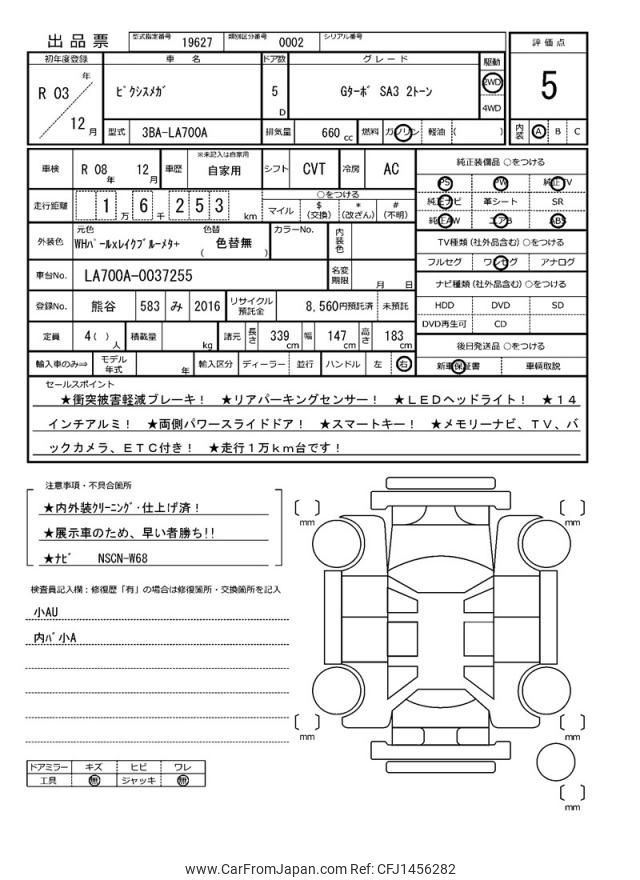 出品票 型式指定番号 19627 類別区分番号 0002 シリアル番号
評価点
初年度登録 車名 ドア数 グレード 駆動
R 03 年 12 月 ピクシスメガ 5 D Gターボ SA3 2トーン 2WD 4WD
5
型式 3BA-LA700A 排気量 660 cc 燃料 ガソリン 軽油 ( )
内装 A B C
車検 R 08 年 12 月 車歴 ※未記入は自家用 自家用 シフト CVT 冷房 AC
純正装備品 ○をつける
PS PW 純正TV
走行距離 1 万 6 千 2 5 3 km ○をつける マイル $ (交換) * (改ざん) # (不明)
純正ナビ 革シート SR
純正AW エアB ABS
外装色 元色 WHパールxレイクブルーメタ+ 色替 ( 色替無 ) カラーNo. 内装色
TV種類 (社外品含む) ○をつける
フルセグ ワンセグ アナログ
車台No. LA700A-0037255 名変期限 月 日
ナビ種類 (社外品含む) ○をつける
登録No. 熊谷 583 み 2016 リサイクル預託金 8,560円預託済 未預託
HDD DVD SD
DVD再生可 CD
定員 4( ) 人 積載量 kg 諸元 長さ 339 cm 幅 147 cm 高さ 183 cm
後日発送品 ○をつける
輸入車のみ⇒ モデル年式 年 輸入区分 ディーラー 並行 ハンドル 左 右
新車保証書 車輌取説
セールスポイント
★衝突被害軽減ブレーキ！ ★リアパーキングセンサー！ ★ＬＥＤヘッドライト！ ★１４
インチアルミ！ ★両側パワースライドドア！ ★スマートキー！ ★メモリーナビ、ＴＶ、バ
ックカメラ、ＥＴＣ付き！ ★走行１万ｋｍ台です！
注意事項・不具合箇所
★内外装クリーニング・仕上げ済！
★展示車のため、早い者勝ち!!
★ナビ NSCN-W68
検査員記入欄：修復歴「有」の場合は修復箇所・交換箇所を記入
小AU
内バ小A
mm
mm
mm
mm
mm
ドアミラー キズ ヒビ ワレ
工具 無 ジャッキ 無
www.CarFromJapan.com Ref: CFJ1456282